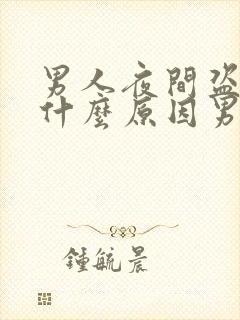 男人夜間盜
什麼原因男
鍾毓晨